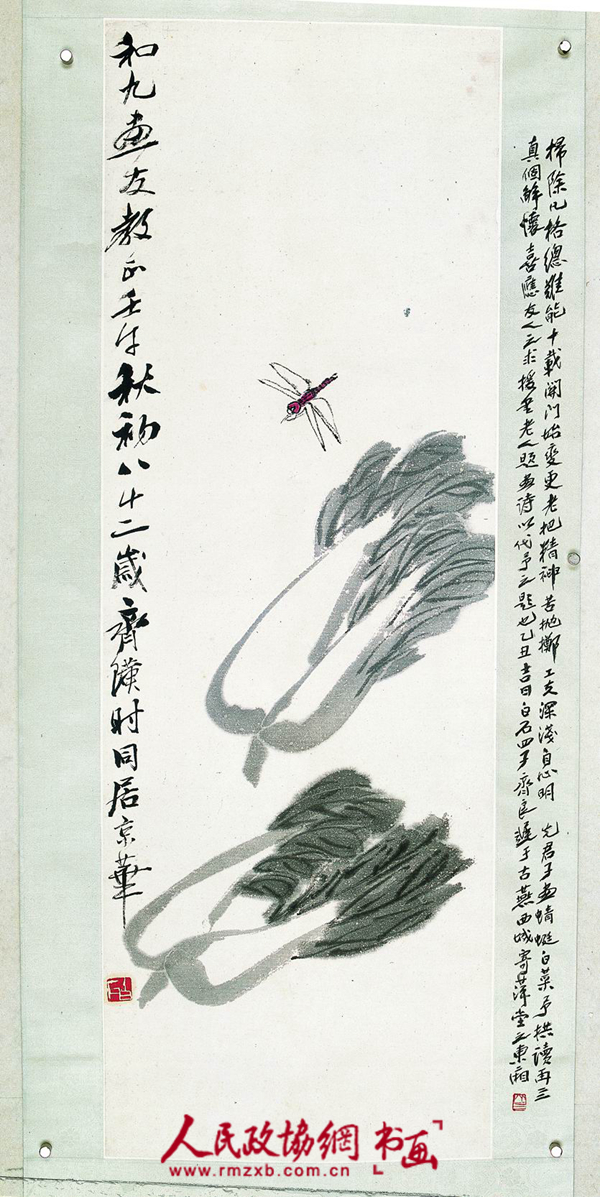 掃除凡格總難能十載關門始變更老把精神苦拋擲工夫深淺自心明 先君子畫蜻蜓白菜予拱讀再三
真個解懷喜應友人之求援老人題畫詩以代予之題也乙丑吉日白石四子齊良遲于古燕西城寄萍堂之東廂
和九畫友教正壬午秋初八十二歲齊璜時同居京華
人民政協網 书画
www.rmzxb.com.cn